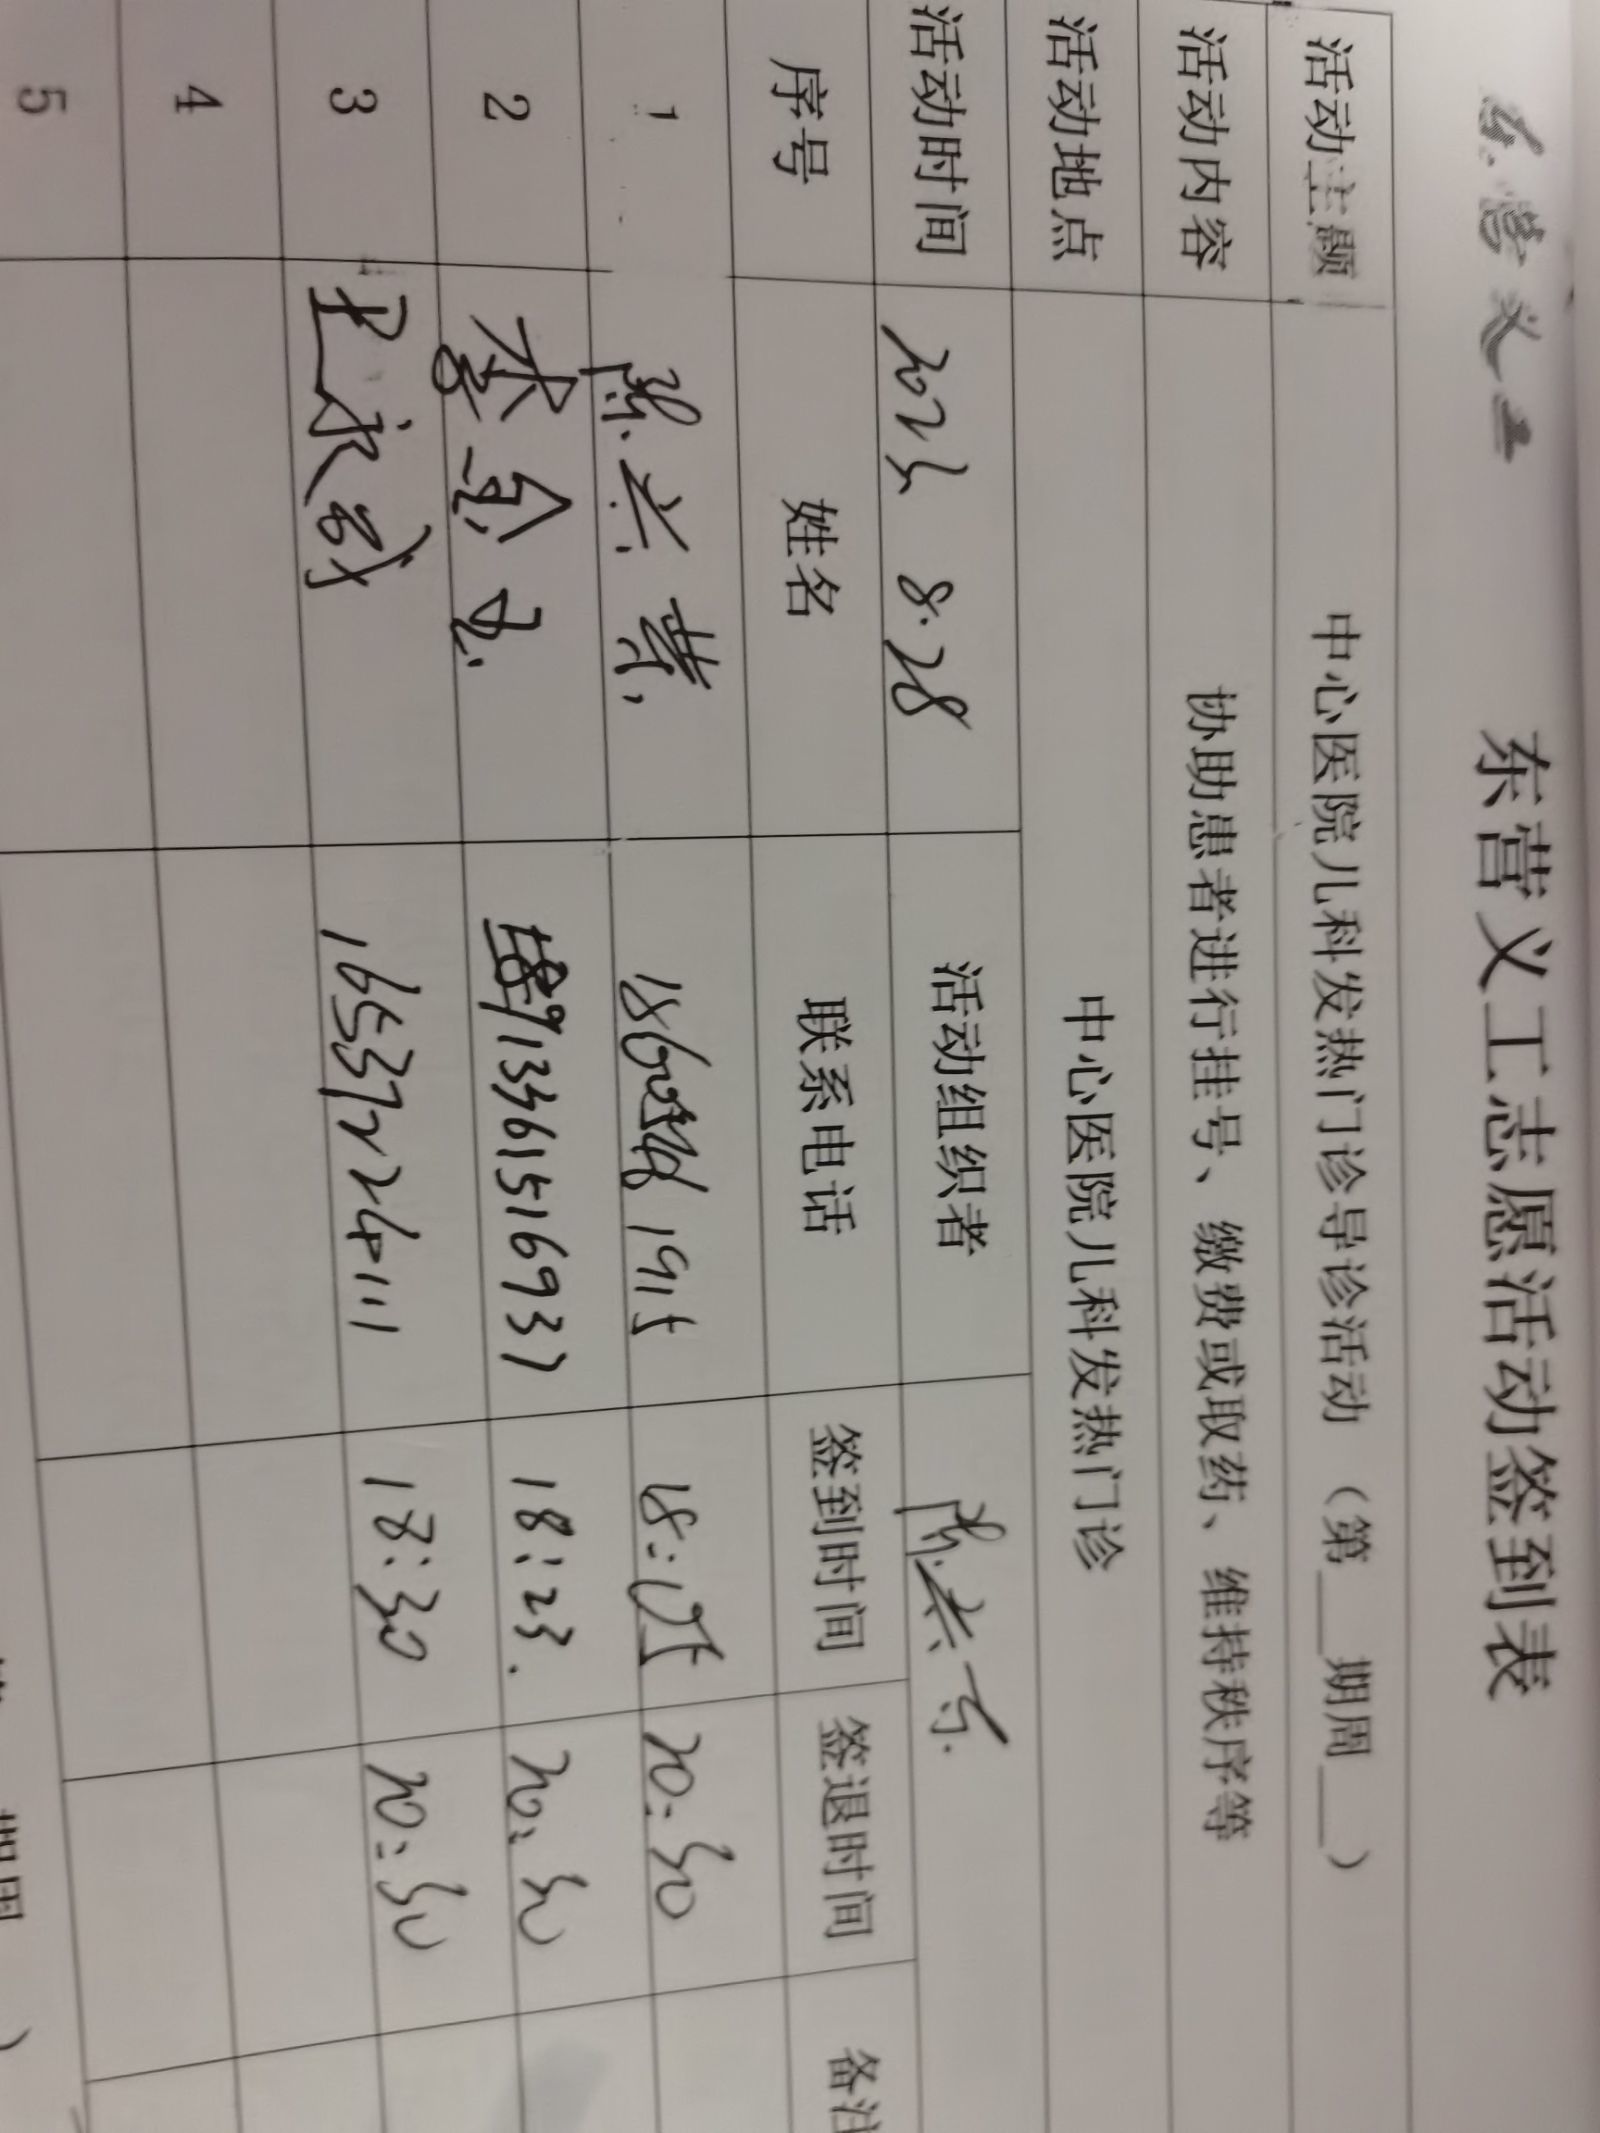 东营义工
东营义工志愿活动签到表
活动主题 中心医院儿科发热门诊导诊活动（第___期周___）
活动内容 协助患者进行挂号、缴费或取药、维持秩序等
活动地点 中心医院儿科发热门诊
活动时间 2023 8.28 活动组织者 陈兴芳
序号 姓名 联系电话 签到时间 签退时间 备注
1 陈兴 18:05 20:30
2 李金玉 13361516937 18:23. 20:30
3 16537224111 18:30 20:30
4
5
期周 ）